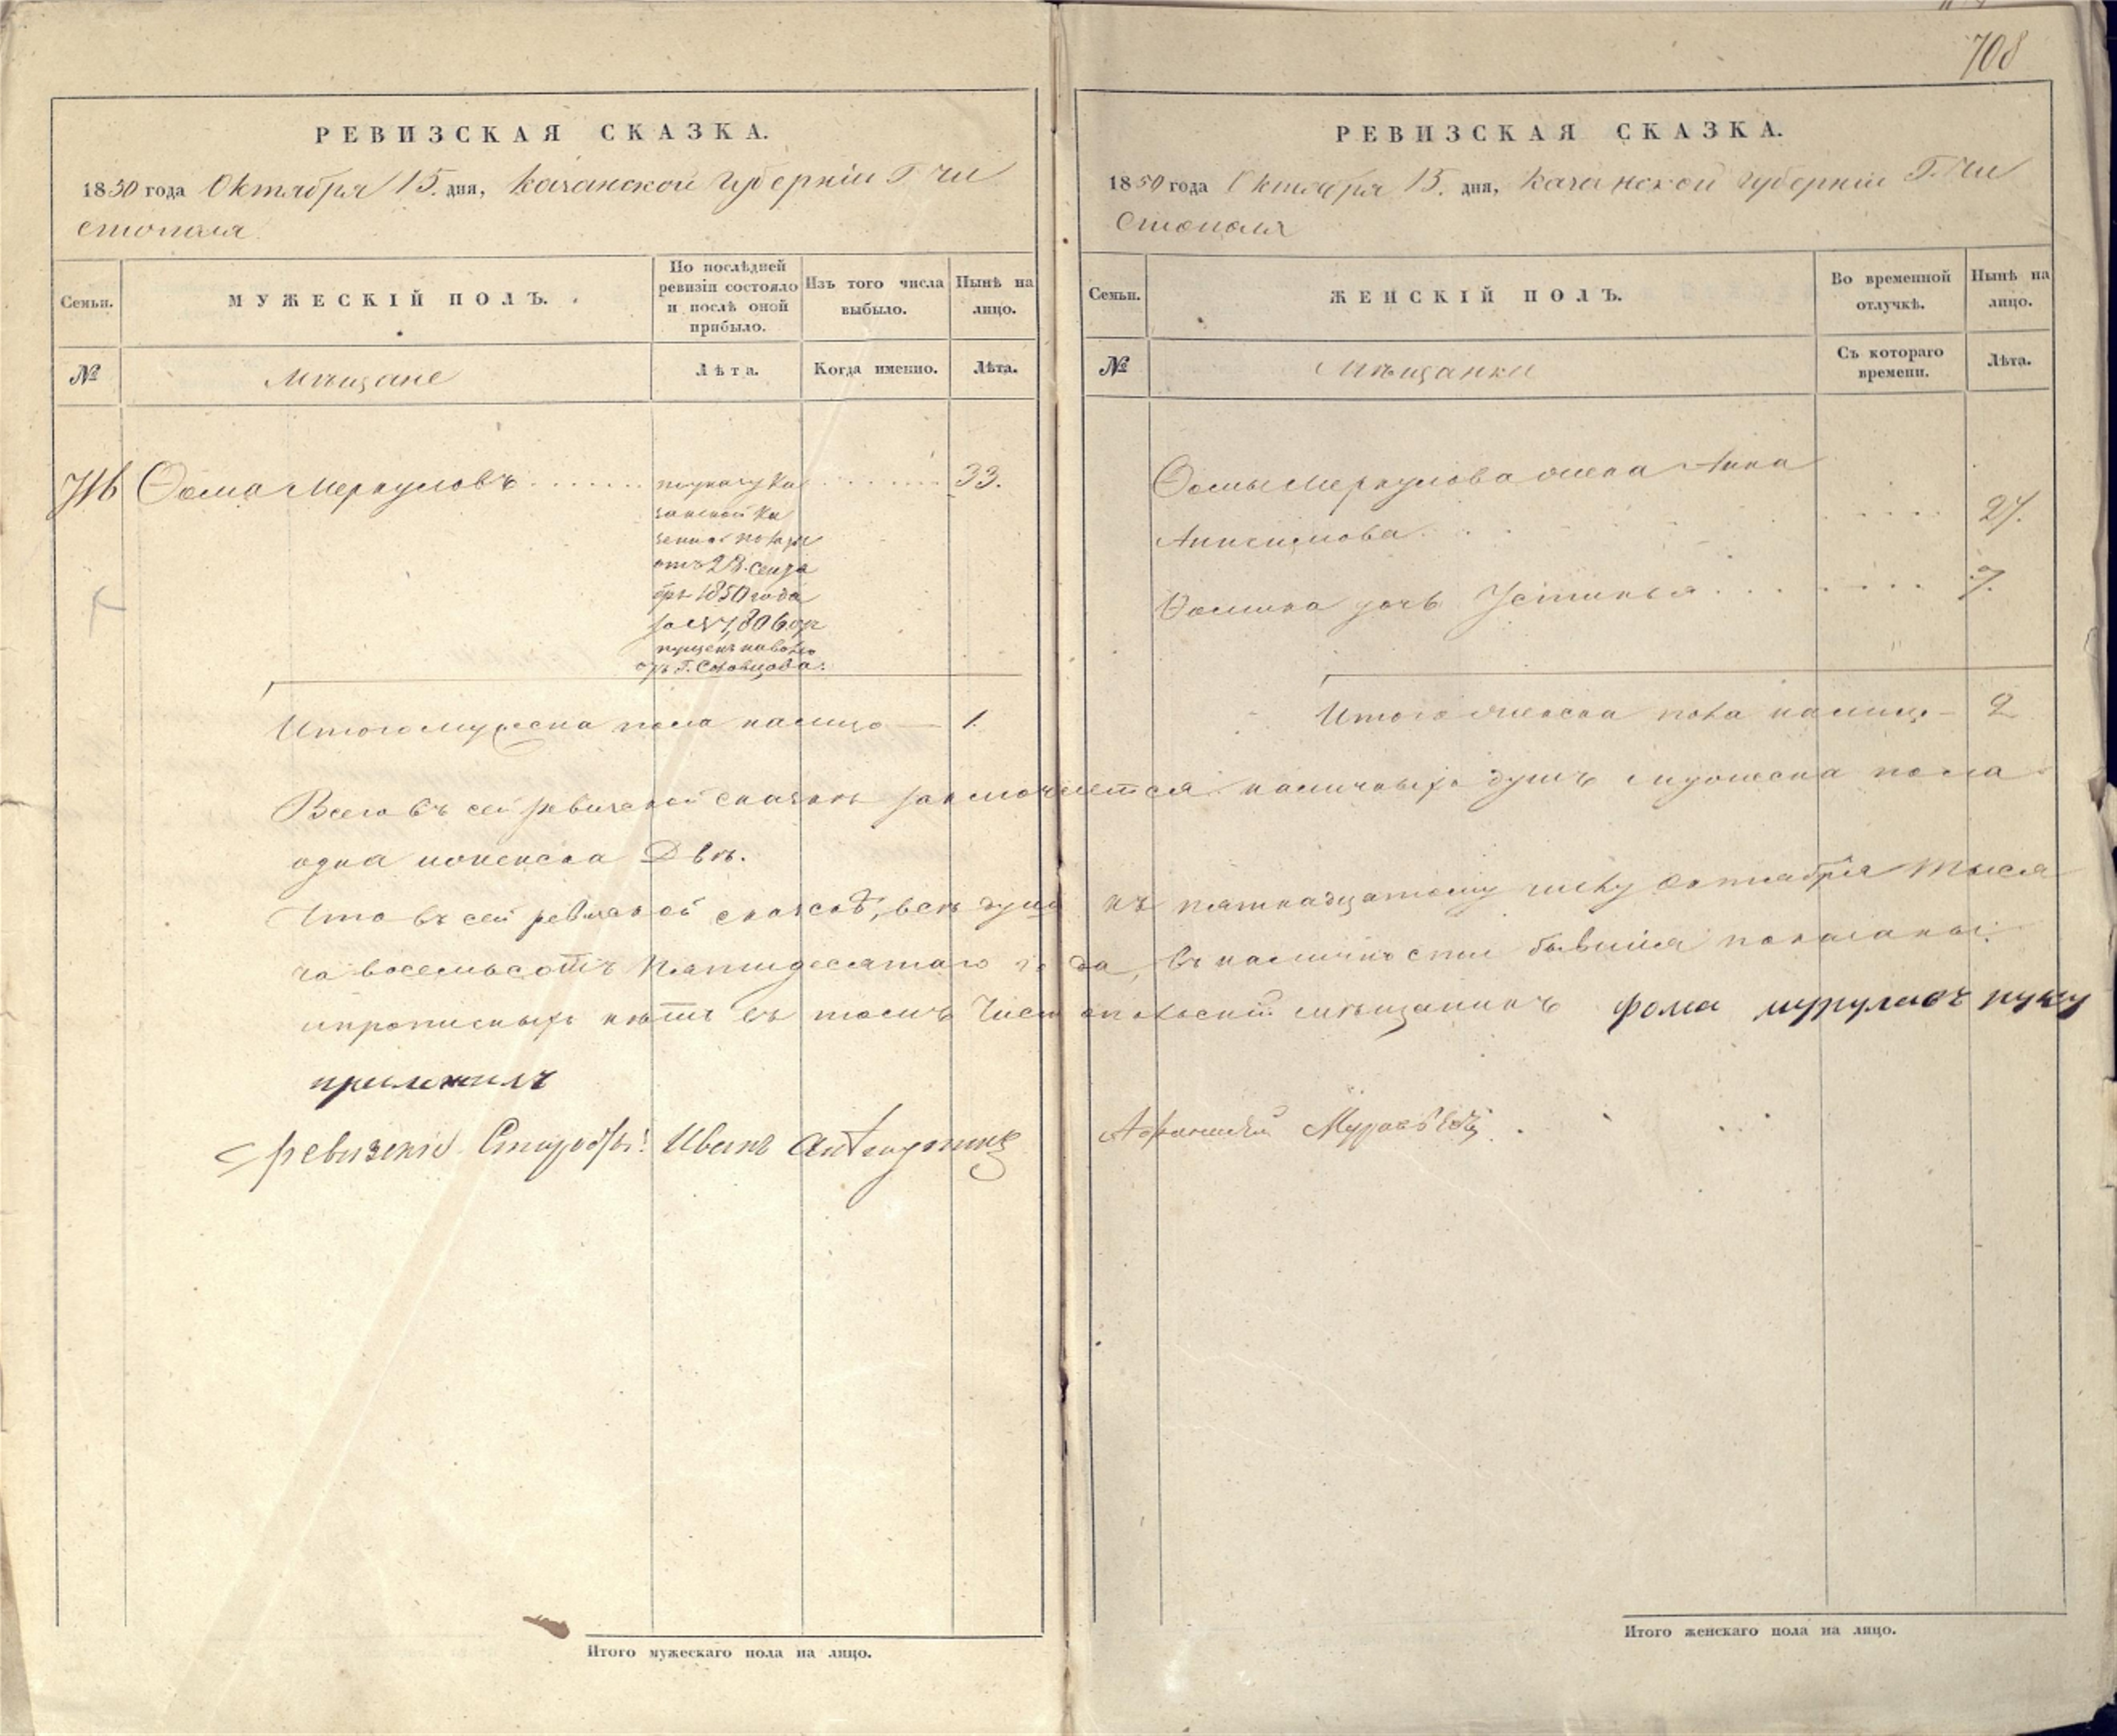 708
РЕВИЗСКАЯ СКАЗКА.
1850 года Октября 15. дня, Казанской Губерніи Г Чи
стополя
Семьи.
МУЖЕСКІЙ ПОЛЪ.
По послѣдней ревизіи состояло и послѣ оной прибыло.
Изъ того числа выбыло.
Нынѣ на лицо.
№
Мѣщане
Лѣта.
Когда именно.
Лѣта.
Ѳома Меркуловъ
по указу Ка
занской Ка
зенной Полаты
отъ 23. сентя
бря 1850 года
за № 7,806. от
пущенъ наволю
отъ Г.
33.
Итого мужеска пола налицо — 1.
РЕВИЗСКАЯ СКАЗКА.
1850 года Октября 15. дня, Казанской Губерніи Г. Чи
стополя
Семьи.
ЖЕНСКІЙ ПОЛЪ.
Во временной отлучкѣ.
Нынѣ на лицо.
№
Мѣщанки
Съ котораго времени.
Лѣта.
Ѳомы Меркулова жена Анна
Анисимова 27.
Ѳомина дочь Устинья 7.
Итого женска пола налицо — 2
Всего въ сей ревизской сказкѣ заключается наличныхъ душъ мужеска пола
одна и женска Двѣ.
Что въ сей ревизской сказкѣ, всѣ души къ пятнадцатому числу октября тыся
ча восемьсотъ пятидесятаго года, въ наличности бывшія показаны
и прописныхъ нѣтъ въ томъ Чистопольскій мѣщанинъ Фома руку
приложилъ
ревизскій Иванъ
Итого мужескаго пола на лицо.
Итого женскаго пола на лицо.